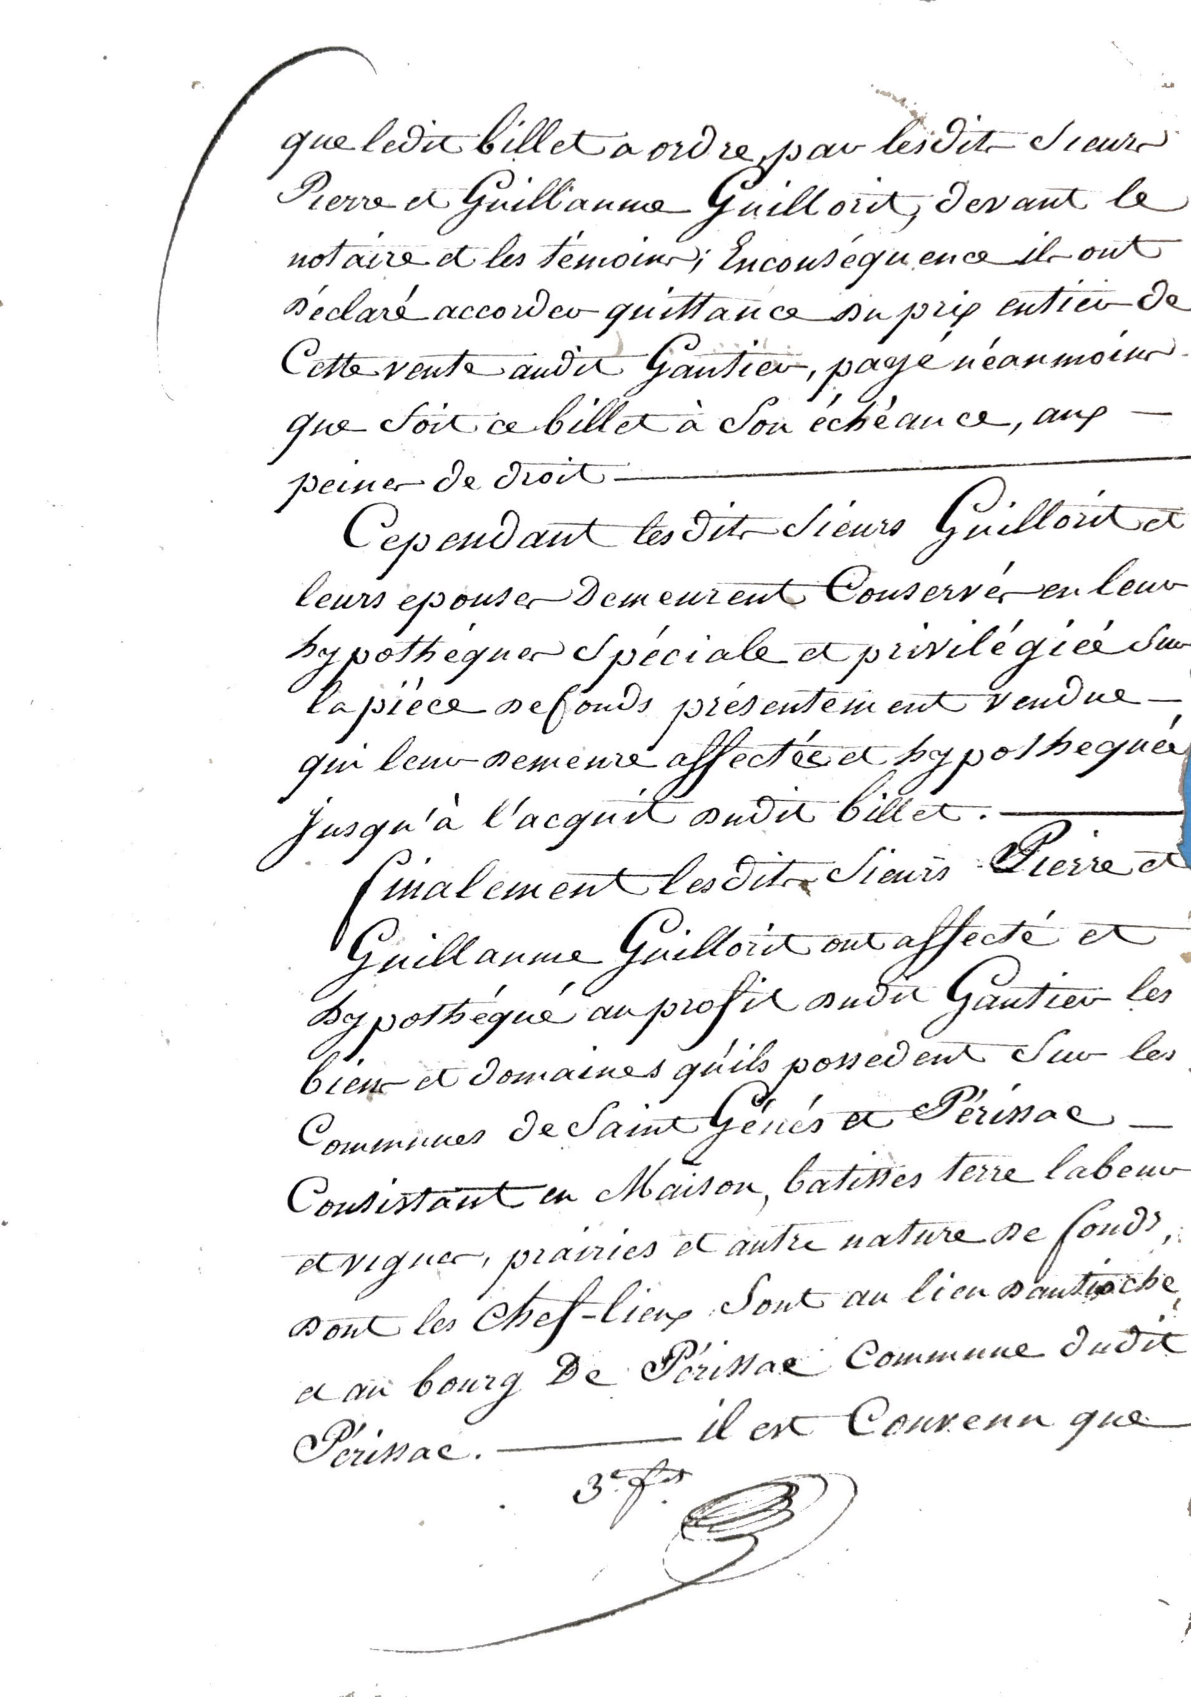 que ledit billet a ordre, par lesdits Sieurs
Pierre et Guillaume Guillorit, devant le
notaire et les témoins; Enconséquence ils ont
déclaré accorder quittance du prix entier de
Cette vente audit Gautier, payé néanmoins
que Soit ce billet à Son échéance, aux —
peines de droit —
Cependant lesdits Sieurs Guillorit et
leurs epouses Demeurent Conservés en leur
hypothéques Spéciale et privilégiée Sur
la piéce de fonds présentement vendue —
qui leur demeure affectée et hypothequée
Jusqu'à l'acquit dudit billet. —
finalement lesdits Sieurs Pierre et
Guillaume Guillorit ont affecté et
hypothéqué au profit dudit Gautier les
biens et domaines qu'ils possedent Sur les
Communes de Saint Génés et Périssac —
Consistant en Maison, batisses terre labour
et vignes, prairies et autre nature de fonds,
dont les Chef-lieux Sont au lieu dantioche,
et au bourg De Périssac Commune dudit
Périssac. — il est Convenu que
3e. f.et